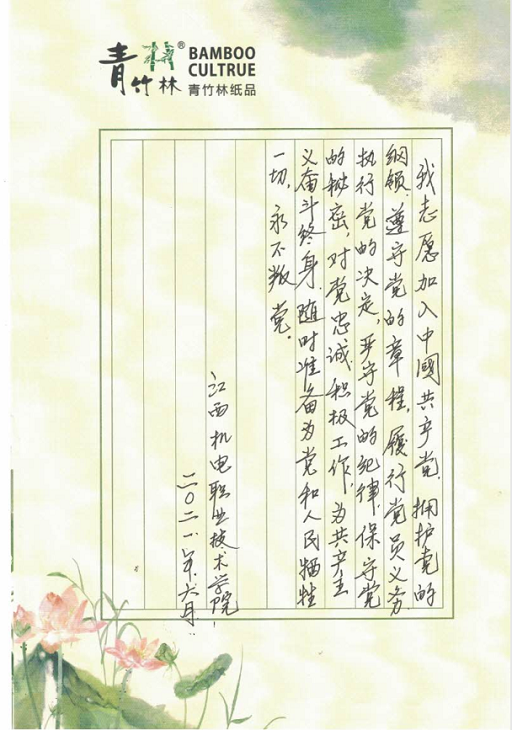 青竹林®
BAMBOO
CULTRUE
青竹林纸品
我志愿加入中國共产党，拥护党的
纲领，遵守党的章程，履行党员义务，
执行党的决定，严守党的纪律，保守党
的秘密，对党忠诚，积极工作，为共产主
义奋斗终身，随时准备为党和人民牺牲
一切，永不叛党。
江西机电职业技术学院
二〇二一年六月